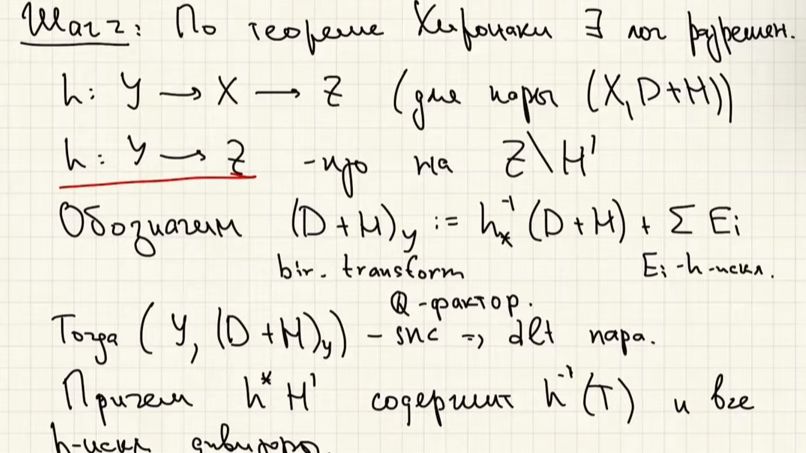 Шаг 2: По теореме Хиронаки ∃ лог разрешен.
h: Y → X → Z (для пары (X, D+H))
h: Y → Z - изо на Z\H'
Обозначим (D+H)_Y := h_*^{-1}(D+H) + Σ E_i
bir. transform E_i - h-искл.
Q-фактор.
Тогда (Y, (D+H)_Y) - snc => dlt пара.
Причем h^* H' содержит h^{-1}(T) и все
h-искл дивизоры.